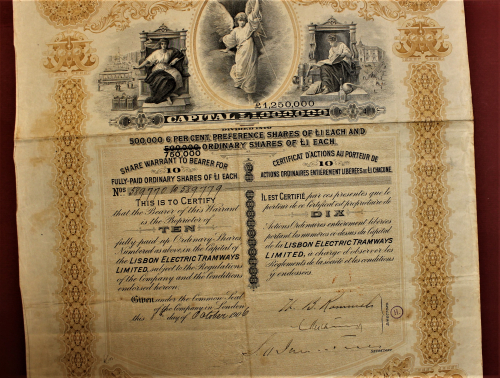 £1,250,000
CAPITAL £1,000,000
DIVIDED INTO
500,000 6 PER CENT. PREFERENCE SHARES OF £1 EACH AND
500,000 ORDINARY SHARES OF £1 EACH.
750,000
SHARE WARRANT TO BEARER FOR
10
FULLY-PAID ORDINARY SHARES OF £1 EACH.
Nos 589770 to 589779
THIS IS TO CERTIFY
that the Bearer of this Warrant
is the Proprietor of
TEN
fully paid up Ordinary Shares
Numbered as above, in the Capital of
the LISBON ELECTRIC TRAMWAYS
LIMITED, subject to the Regulations
of the Company and the Conditions
endorsed hereon.
Given under the Common Seal
of the Company in London,
this 9th day of October 1906
CERTIFICAT D'ACTIONS AU PORTEUR DE
10
ACTIONS ORDINAIRES ENTIEREMENT LIBÉRÉES DE £1 CHACUNE.
IL EST CERTIFIÉ, par ces présentes que le
porteur de ce Certificat est propriétaire de
DIX
Actions Ordinaires entièrement libérées
portant les numéros ci-dessus du Capital
de la LISBON ELECTRIC TRAMWAYS
LIMITED, à charge d'observer les
Règlements de la société et les conditions
y endossées.
SECRETARY